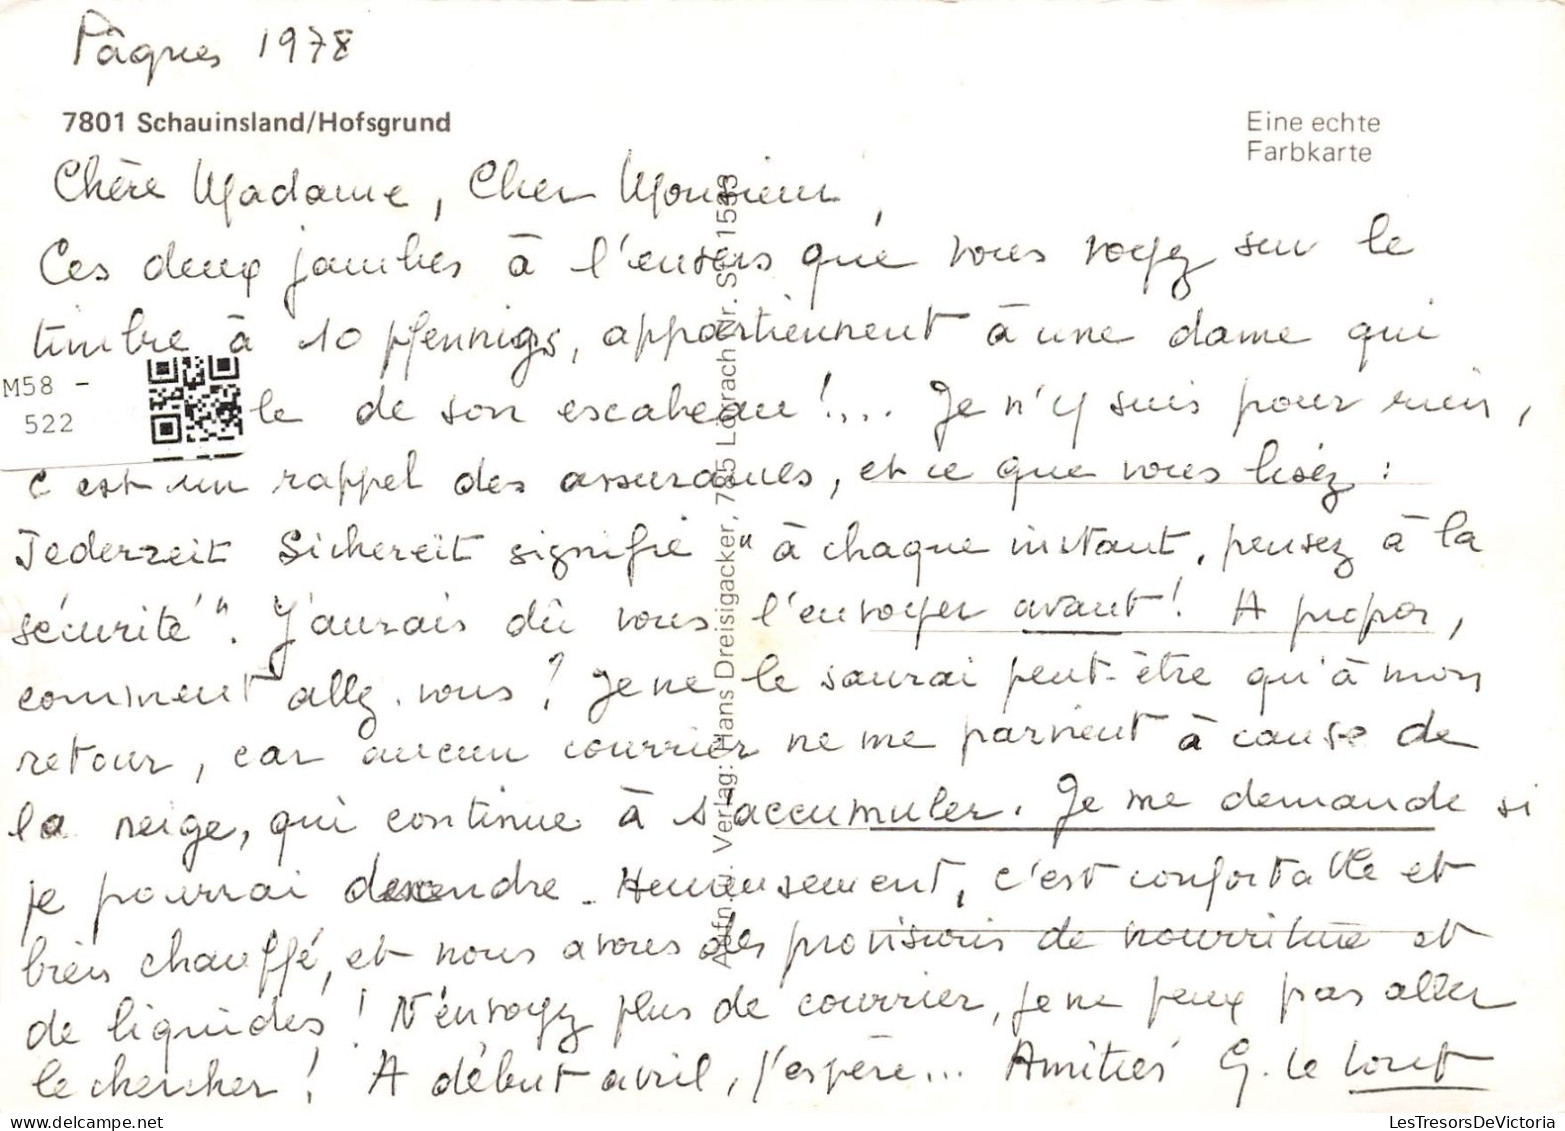 Pâques 1978
7801 Schauinsland/Hofsgrund
Eine echte
Farbkarte
Chère Madame, Cher Monsieur,
Ces deux jambes à l'envers que vous voyez sur le
timbre à 10 pfennigs, appartiennent à une dame qui
M58 -
522
le de son escabeau !... Je n'y suis pour rien,
c'est un rappel des assurances, et ce que vous lisez :
Jederzeit Sicherheit signifie "à chaque instant, pensez à la
sécurité". J'aurais dû vous l'envoyer avant ! A propos,
comment allez-vous ? Je ne le saurai peut-être qu'à mon
retour, car aucun courrier ne me parvient à cause de
la neige, qui continue à s'accumuler. Je me demande si
je pourrai descendre. Heureusement, c'est confortable et
bien chauffé, et nous avons des provisions de nourriture et
de liquides ! N'envoyez plus de courrier, je ne peux pas aller
le chercher ! A début avril, j'espère... Amitiés G. Le Lout
Verlag: Hans Dreisigacker, 785 Lörrach
LesTresorsDeVictoria